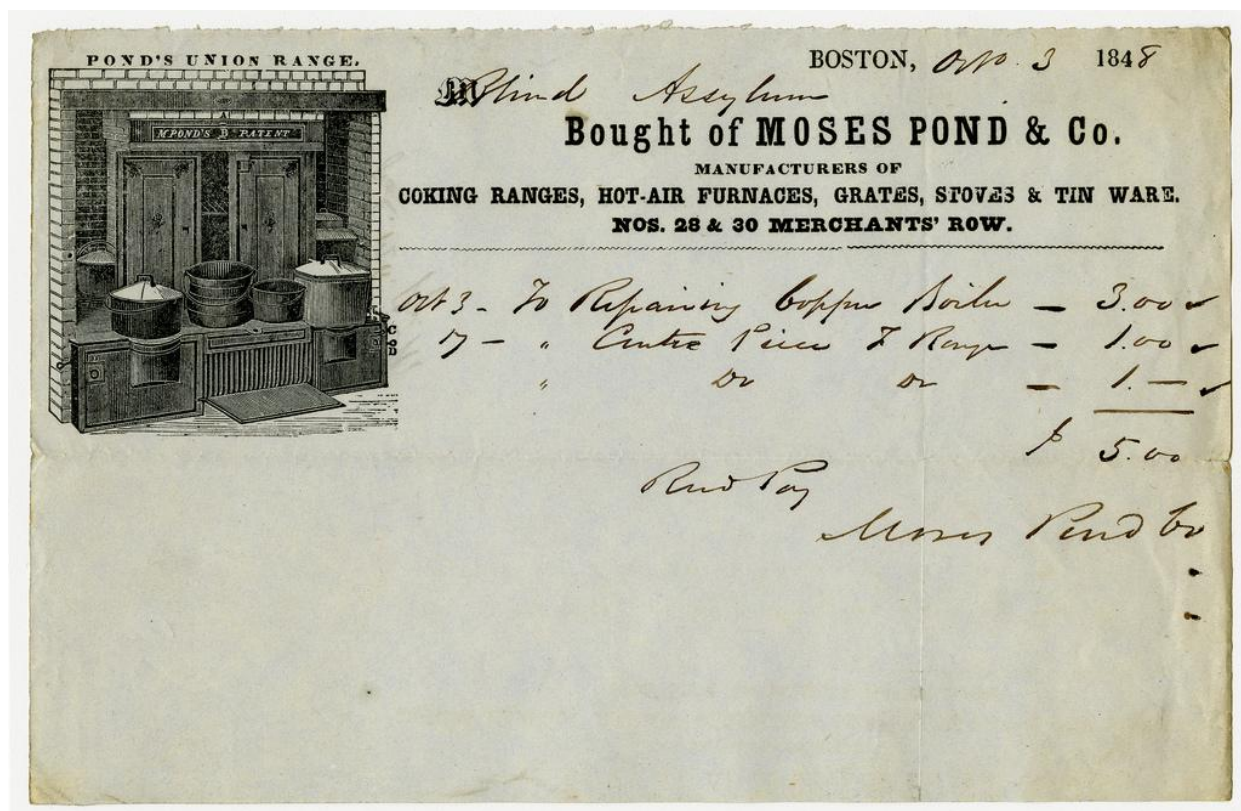 POND'S UNION RANGE.
M POND'S B PATENT
BOSTON, Oct 3 1848
M Blind Assylum
Bought of MOSES POND & Co.
MANUFACTURERS OF
COKING RANGES, HOT-AIR FURNACES, GRATES, STOVES & TIN WARE.
NOS. 28 & 30 MERCHANTS' ROW.
Oct 3 - To Repairing Copper Boiler — 3.00
— " Centre Piece Range — 1.00
" Do Do — 1.—
$ 5.00
Recd Pay
Moses Pond Co